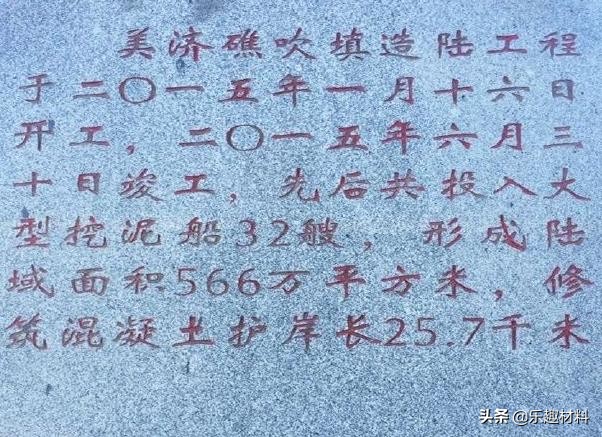 美济礁吹填造陆工程
于二〇一五年一月十六日
开工，二〇一五年六月三
十日竣工，先后共投入大
型挖泥船32艘，形成陆
域面积566万平方米，修
筑混凝土护岸长25.7千米
头条@乐趣材料